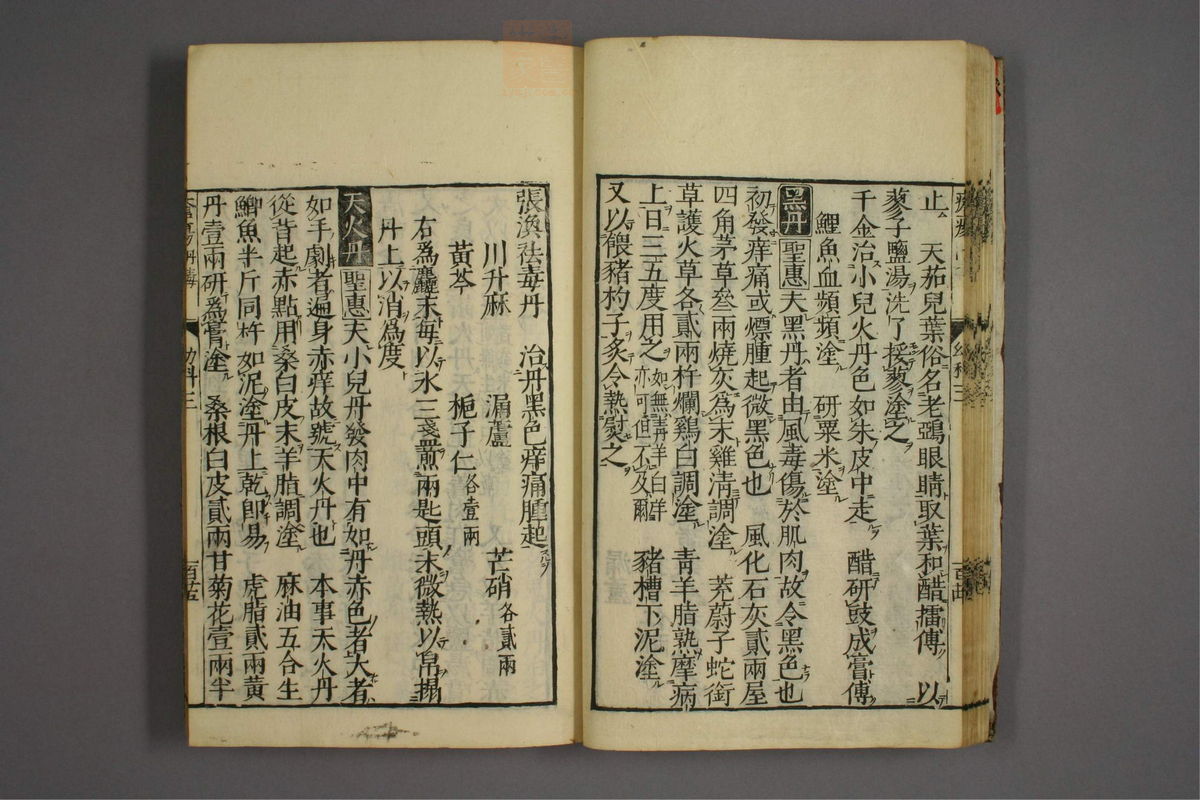 止 天茄兒葉俗名老鴉眼睛取葉和醋擂傅 以
蓼子鹽湯洗了挼蓼塗之
千金治小兒火丹色如朱皮中走 醋研豉成膏傅
鯉魚血頻頻塗 研粟米塗
黑丹 聖惠夫黑丹者由風毒傷於肌肉故令黑色也
初發痒痛或熛腫起微黑色也 風化石灰貳兩屋
四角茅草叄兩燒灰為末雞清調塗 茺蔚子蛇銜
草護火草各貳兩杵爛鷄白調塗 靑羊脂熟摩病
上日三五度用之如無靑羊白羊亦可但不及爾 豬槽下泥塗
又以餵豬杓子炙令熱熨之
張渙祛毒丹 治丹黑色痒痛腫起
川升麻 漏蘆 芒硝各貳兩
黃芩 梔子仁各壹兩
右爲麤末每以水三盞煎兩匙頭末微熱以帛搨
丹上以消爲度
天火丹 聖惠夫小兒丹發肉中有如丹赤色者大者
如手劇者遍身赤痒故號天火丹也 本事天火丹
從背起赤點用桑白皮末羊脂調塗 麻油五合生
鯽魚半斤同杵如泥塗丹上乾即易 虎脂貳兩黃
丹壹兩研爲膏塗 桑根白皮貳兩甘菊花壹兩半
幼科三